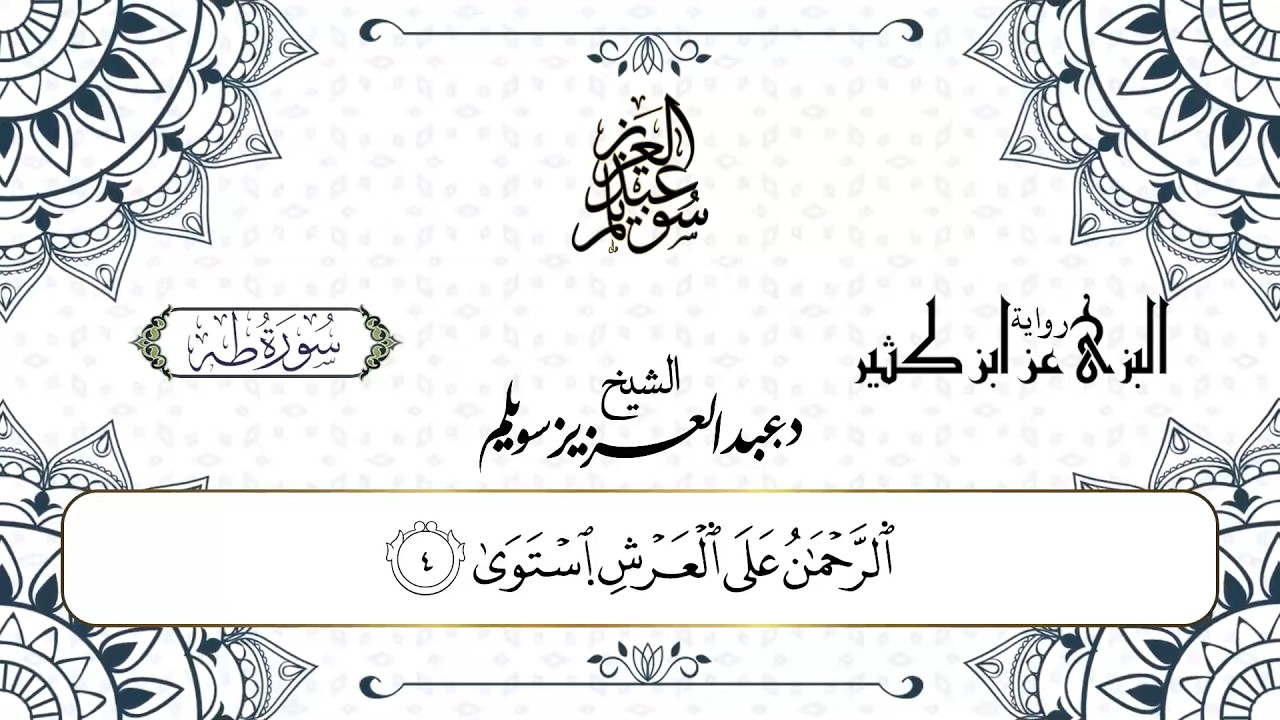 عبد العزيز سويلم
سُورَةُ طه
رواية
البزي عن ابن كثير
الشيخ
د عبدالعزيز سويلم
ٱلرَّحْمَٰنُ عَلَى ٱلْعَرْشِ ٱسْتَوَىٰ ٤